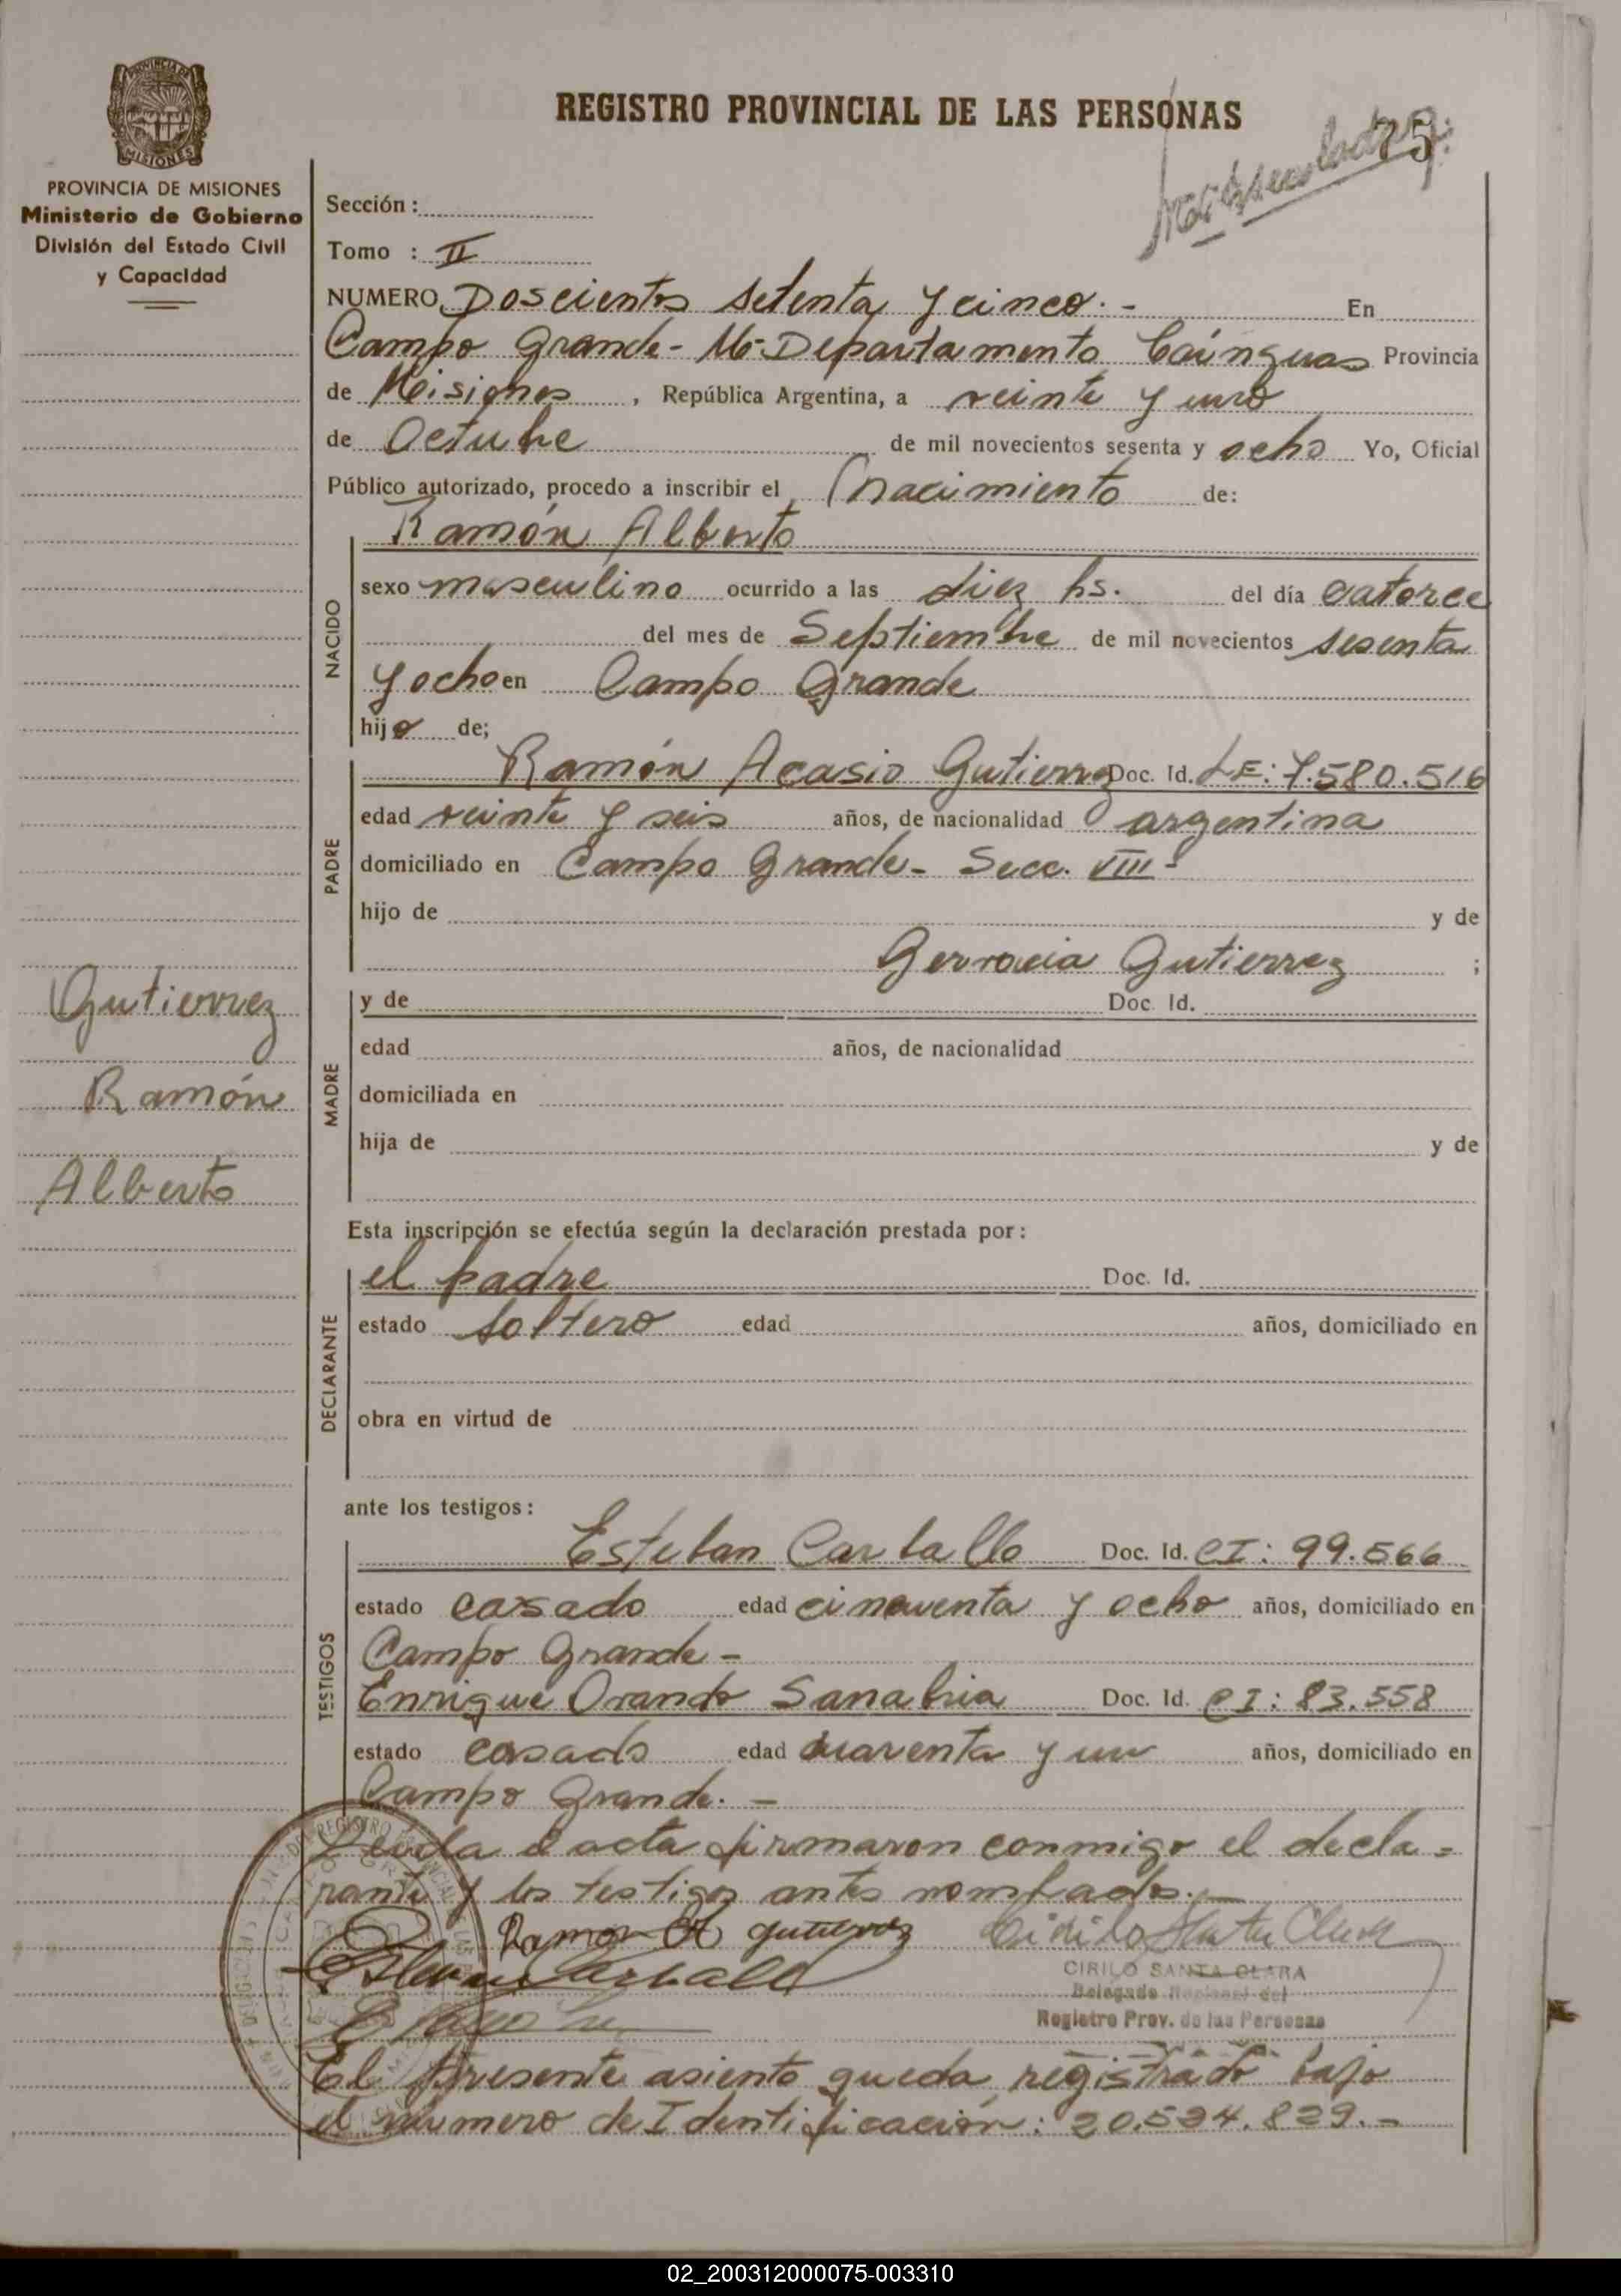 REGISTRO PROVINCIAL DE LAS PERSONAS
75
PROVINCIA DE MISIONES
Ministerio de Gobierno
División del Estado Civil
y Capacidad
Sección :
Tomo : II
NUMERO Doscientos setenta y cinco. - En
Campo Grande - Ms - Departamento Cainguas Provincia
de Misiones , República Argentina, a veinte y uno
de Octubre de mil novecientos sesenta y ocho Yo, Oficial
Público autorizado, procedo a inscribir el nacimiento de:
NACIDO
Ramón Alberto
sexo masculino ocurrido a las diez hs. del día catorce
del mes de Septiembre de mil novecientos sesenta
y ocho en Campo Grande
hijo de;
PADRE
Ramón Acasio Gutierrez Doc. Id. LE: 7.580.516
edad veinte y seis años, de nacionalidad argentina
domiciliado en Campo Grande - Secc. VIII -
hijo de y de
Gervacia Gutierrez ;
MADRE
y de Doc. Id.
edad años, de nacionalidad
domiciliada en
hija de y de
Gutierrez
Ramón
Alberto
Esta inscripción se efectúa según la declaración prestada por :
DECLARANTE
el padre Doc. Id.
estado soltero edad años, domiciliado en
obra en virtud de
ante los testigos :
TESTIGOS
Esteban Carballo Doc. Id. CI: 99.566
estado casado edad cincuenta y ocho años, domiciliado en
Campo Grande -
Enrique Orando Sanabria Doc. Id. CI: 83.558
estado casado edad cuarenta y un años, domiciliado en
Campo Grande. -
Leida el acta firmaron conmigo el decla=
rante y los testigos antes nombrados. -
Ramon A gutierrez
CIRILO SANTA CLARA
Delegado Regional del
Registro Prov. de las Personas
El presente asiento queda registrado bajo
el número de Identificación: 20.534.829. -
02_200312000075-003310